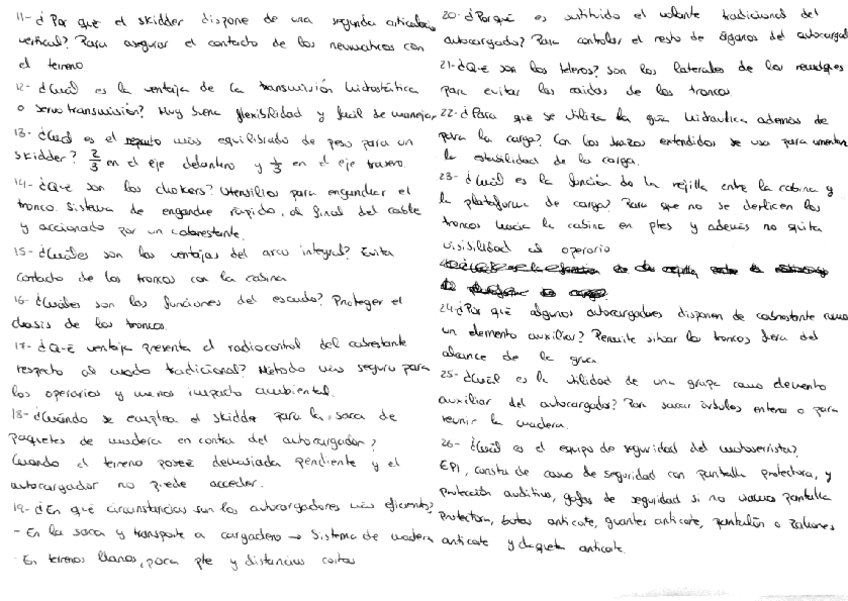 11- ¿Por qué el skidder dispone de una segunda articulación
vertical? Para asegurar el contacto de los neumáticos con
el terreno
12- ¿Cuál es la ventaja de la transmisión hidostática
o servotransmisión? Muy buena flexibilidad y fácil de manejar
13- ¿Cuál es el reparto más equilibrado de peso para un
skidder? 2/3 en el eje delantero y 1/3 en el eje trasero.
14- ¿Qué son los chokers? Utensilios para enganchar el
tronco. Sistema de enganche rápido, al final del cable
y accionado por un cabrestante.
15- ¿Cuáles son las ventajas del arco integral? Evita
contacto de los troncos con la cabina
16- ¿Cuáles son las funciones del escudo? Proteger el
chasis de los troncos.
17- ¿Qué ventaja presenta el radiocontrol del cabrestante
respecto al modo tradicional? Método más seguro para
los operarios y menos impacto ambiental.
18- ¿Cuándo se emplea el skidder para la saca de
paquetes de madera en contra del autocargador?
Cuando el terreno posee demasiada pendiente y el
autocargador no puede acceder.
19- ¿En qué circunstancias son los autocargadores más eficientes?
- En la saca y transporte a cargadero → Sistema de madera
- En terrenos llanos, poca pte y distancias cortas
20- ¿Por qué es sustituido el volante tradicional del
autocargado? Para controlar el resto de órganos del autocargad
21- ¿Qué son los teleros? Son los laterales de los remolques
para evitar las caidas de los troncos
22- ¿Para que se utiliza la grúa hidraulica además de
para la carga? Con los brazos extendidos se usa para aumentar
la estabilidad de la carga.
23- ¿Cuál es la función de la rejilla entre la cabina y
la plataforma de carga? Para que no se deslicen los
troncos hacia la cabina en ptes y además no quita
visibilidad al operario
24- ¿Por qué algunos autocargadores disponen de cabrestante como
un elemento auxiliar? Permite situar los troncos fuera del
alcance de la grúa.
25- ¿Cuál es la utilidad de una grapa como elemento
auxiliar del autocargador? Para sacar árboles enteros o para
reunir la madera.
26- ¿Cuál es el equipo de seguridad del motoserrista?
EPI, consta de casco de seguridad con pantalla protectora, y
protección auditiva, gafas de seguridad si no pantalla
protectora, botas anticorte, guantes anticorte, pantalón o zahones
anticorte y chaqueta anticorte.